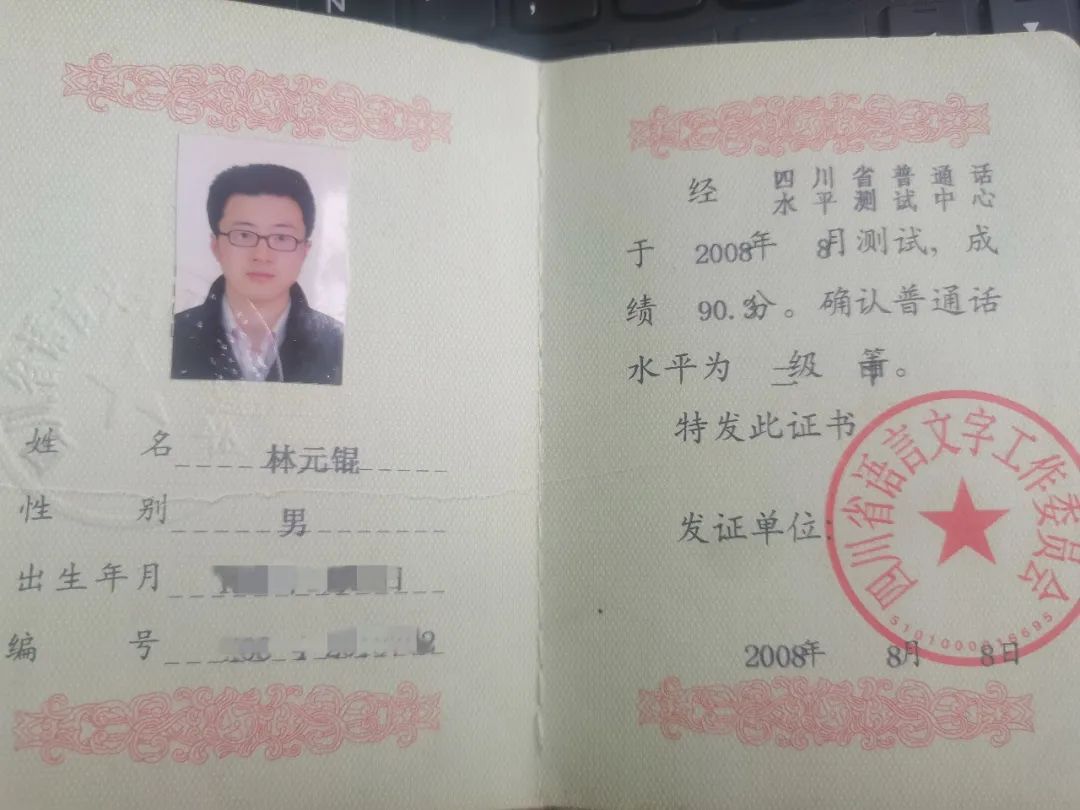 姓名 林元锟
性别 男
出生年月
编号 2
经 四川省普通话
水平测试中心
于 2008年 8月测试，成
绩 90.3分。确认普通话
水平为 二级 甲等。
特发此证书
发证单位：
四川省语言文字工作委员会
5101000016695
2008年 8月 8日